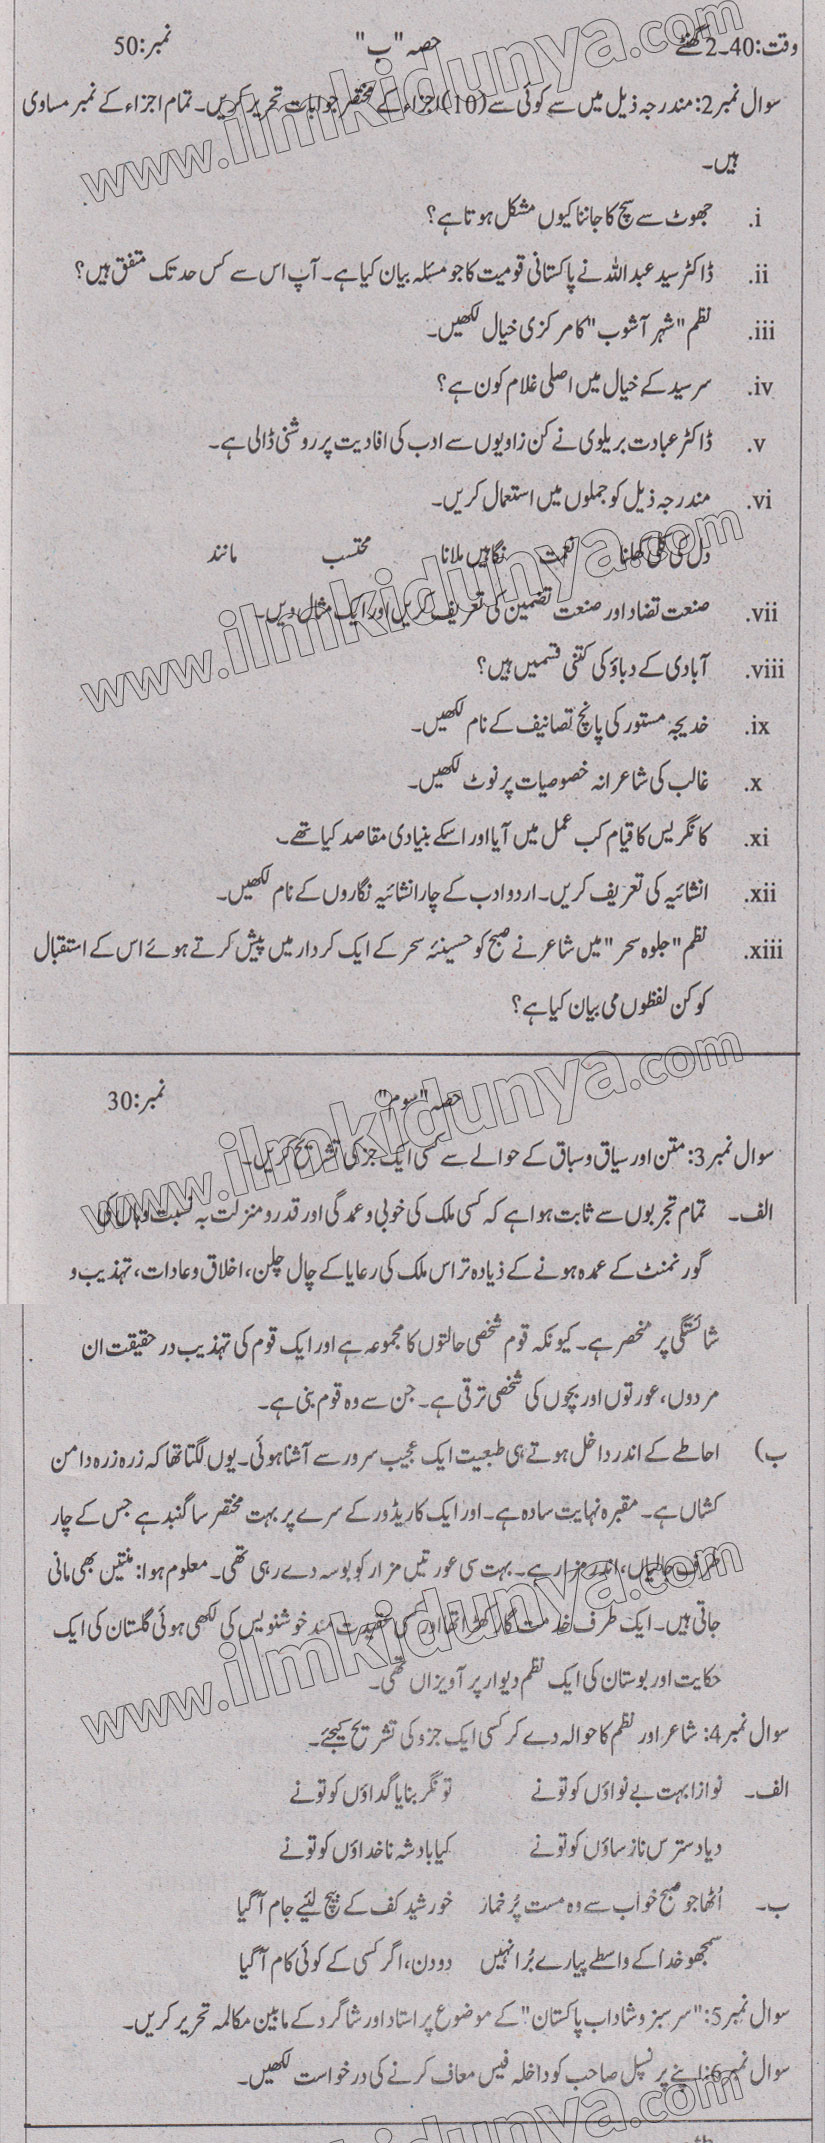 وقت: 40-2 گھنٹے حصہ "ب" نمبر: 50
سوال نمبر 2: مندرجہ ذیل میں سے کوئی سے (10) اجزاء کے مختصر جوابات تحریر کریں۔ تمام اجزاء کے نمبر مساوی
ہیں۔
i. جھوٹ سے سچ کا جاننا کیوں مشکل ہوتا ہے؟
ii. ڈاکٹر سید عبداللہ نے پاکستانی قومیت کا جو مسئلہ بیان کیا ہے۔ آپ اس سے کس حد تک متفق ہیں؟
iii. نظم "شہر آشوب" کا مرکزی خیال لکھیں۔
iv. سرسید کے خیال میں اصلی غلام کون ہے؟
v. ڈاکٹر عبادت بریلوی نے کن زاویوں سے ادب کی افادیت پر روشنی ڈالی ہے۔
vi. مندرجہ ذیل کو جملوں میں استعمال کریں۔
دل کی کلی کھلنا نعمت نگاہیں ملانا محتسب مانند
vii. صنعت تضاد اور صنعت تضمین کی تعریف کریں اور ایک مثال دیں۔
viii. آبادی کے دباؤ کی کتنی قسمیں ہیں؟
ix. خدیجہ مستور کی پانچ تصانیف کے نام لکھیں۔
x. غالب کی شاعرانہ خصوصیات پر نوٹ لکھیں۔
xi. کانگریس کا قیام کب عمل میں آیا اور اسکے بنیادی مقاصد کیا تھے۔
xii. انشائیہ کی تعریف کریں۔ اردو ادب کے چار انشائیہ نگاروں کے نام لکھیں۔
xiii. نظم "جلوہ سحر" میں شاعر نے صبح کو حسینئہ سحر کے ایک کردار میں پیش کرتے ہوئے اس کے استقبال
کو کن لفظوں می بیان کیا ہے؟
حصہ "سوم" نمبر: 30
سوال نمبر 3: متن اور سیاق و سباق کے حوالے سے کسی ایک جز کی تشریح کریں۔
الف۔ تمام تجربوں سے ثابت ہوا ہے کہ کسی ملک کی خوبی و عمدگی اور قدر و منزلت بہ نسبت وہاں کی
گورنمنٹ کے عمدہ ہونے کے ذیادہ تر اس ملک کی رعایا کے چال چلن، اخلاق و عادات، تہذیب و
شائستگی پر منحصر ہے۔ کیونکہ قوم شخصی حالتوں کا مجموعہ ہے اور ایک قوم کی تہذیب در حقیقت ان
مردوں، عورتوں اور بچوں کی شخصی ترقی ہے۔ جن سے وہ قوم بنی ہے۔
ب) احاطے کے اندر داخل ہوتے ہی طبعیت ایک عجیب سرور سے آشنا ہوئی۔ یوں لگتا تھا کہ زرہ زرہ دامن
کشاں ہے۔ مقبرہ نہایت سادہ ہے۔ اور ایک کاریڈور کے سرے پر بہت مختصر سا گنبد ہے جس کے چار
طرف جالیاں، اندر مزار ہے۔ بہت سی عورتیں مزار کو بوسہ دے رہی تھی۔ معلوم ہوا: منتیں بھی مانی
جاتی ہیں۔ ایک طرف خدمت گار کھڑا تھا اور کسی عقیدت مند خوشنویس کی لکھی ہوئی گلستان کی ایک
حکایت اور بوستان کی ایک نظم دیوار پر آویزاں تھی۔
سوال نمبر 4: شاعر اور نظم کا حوالہ دے کر کسی ایک جزو کی تشریح کیجئے۔
الف۔ نوازا بہت بے نواؤں کو تونے تونگر بنایا گداؤں کو تونے
دیا دسترس نارساؤں کو تونے کیا بادشہ ناخداؤں کو تونے
ب۔ اُٹھا جو صبح خواب سے وہ مست پُر خمار خورشید کف کے بیچ لیئے جام آ گیا
سمجھو خدا کے واسطے پیارے بُرا نہیں دو دن، اگر کسی کے کوئی کام آ گیا
سوال نمبر 5: "سر سبز و شاداب پاکستان" کے موضوع پر استاد اور شاگرد کے مابین مکالمہ تحریر کریں۔
سوال نمبر 6: اپنے پرنسپل صاحب کو داخلہ فیس معاف کرنے کی درخواست لکھیں۔
www.ilmkidunya.com
www.ilmkidunya.com
www.ilmkidunya.com
www.ilmkidunya.com